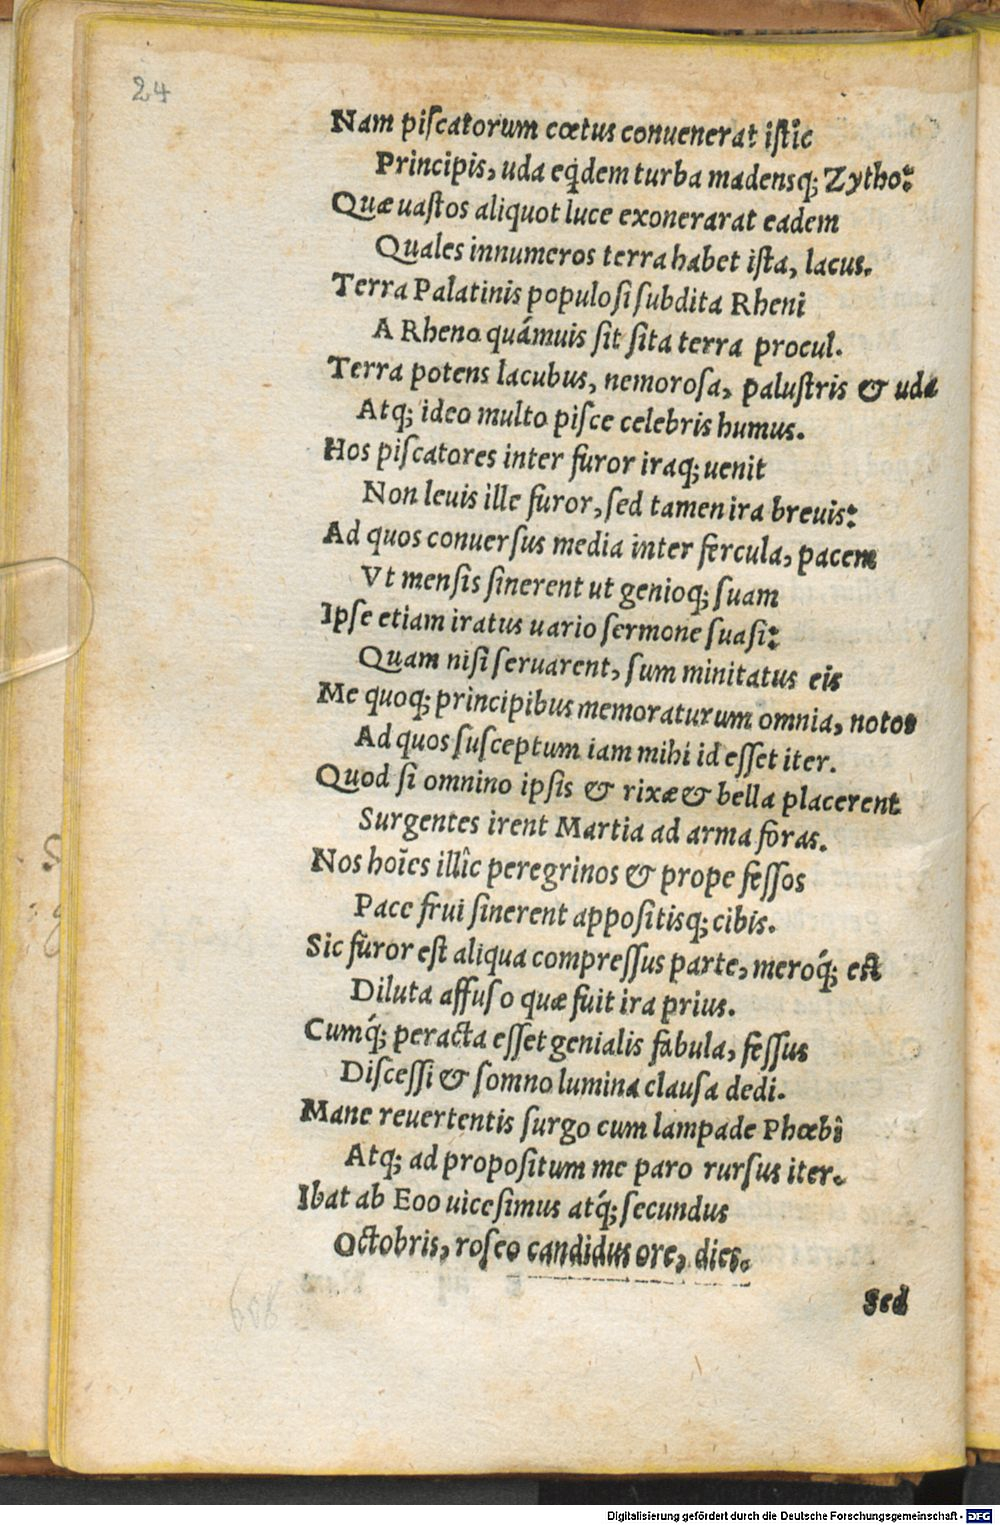 24
Nam piſcatorum cœtus conuenerat iſtîc
Principis, uda eq̇dem turba madensq; Zytho:
Quæ uaſtos aliquot luce exonerarat eadem
Quales innumeros terra habet iſta, lacus.
Terra Palatinis populoſi ſubdita Rheni
A Rheno quámuis ſit ſita terra procul.
Terra potens lacubus, nemoroſa, paluſtris & uda
Atq; ideo multo piſce celebris humus.
Hos piſcatores inter furor iraq; uenit
Non leuis ille furor, ſed tamen ira breuis:
Ad quos conuerſus media inter fercula, pacem
Vt menſis ſinerent ut genioq; ſuam
Ipſe etiam iratus uario ſermone ſuaſi:
Quam niſi ſeruarent, ſum minitatus eis
Me quoq; principibus memoraturum omnia, notos
Ad quos ſuſceptum iam mihi id eſſet iter.
Quod ſi omnino ipſis & rixæ & bella placerent
Surgentes irent Martia ad arma foras.
Nos hoīes illîc peregrinos & prope feſſos
Pace frui ſinerent appoſitisq; cibis.
Sic furor eſt aliqua compreſſus parte, meroq́; eſt
Diluta affuſo quæ fuit ira prius.
Cumq́; peracta eſſet genialis fabula, feſſus
Diſceſſi & ſomno lumina clauſa dedi.
Mane reuertentis ſurgo cum lampade Phœbî
Atq; ad propoſitum me paro rurſus iter.
Ibat ab Eoo uiceſimus atq́; ſecundus
Octobris, roſeo candidus ore, dies.
Sed
Digitalisierung gefördert durch die Deutsche Forschungsgemeinschaft - DFG